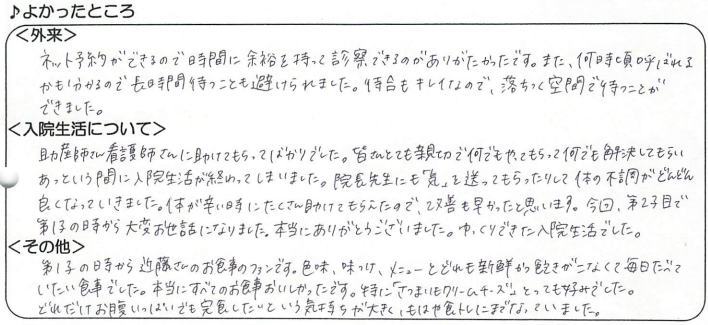 ♪よかったところ
＜外来＞
ネット予約ができるので時間に余裕を持って診察できるのがありがたかったです。また、何時頃呼ばれる
かも分かるので長時間待つことも避けられました。待合もキレイなので、落ちつく空間で待つことが
できました。
＜入院生活について＞
助産師さん看護師さんに助けてもらってばかりでした。皆さんとても親切で何でもやってもらって何でも解決してもらい
あっという間に入院生活が終わってしまいました。院長先生にも「気」を送ってもらったりして体の不調がどんどん
良くなっていきました。体が辛い時にたくさん助けてもらえたので、改善も早かったと思います。今回、第2子目で
第1子の時から大変お世話になりました。本当にありがとうございました。ゆっくりできた入院生活でした。
＜その他＞
第1子の時から近藤さんのお食事のファンです。色味、味つけ、メニューとどれも新鮮から飽きがこなくて毎日たべて
いたい食事でした。本当にすべてのお食事おいしかったです。特に「さつまいもクリームチーズ」、とっても好みでした。
どれだけお腹いっぱいでも完食したいという気持ちが大きく、もはや食トレにまでなっていました。